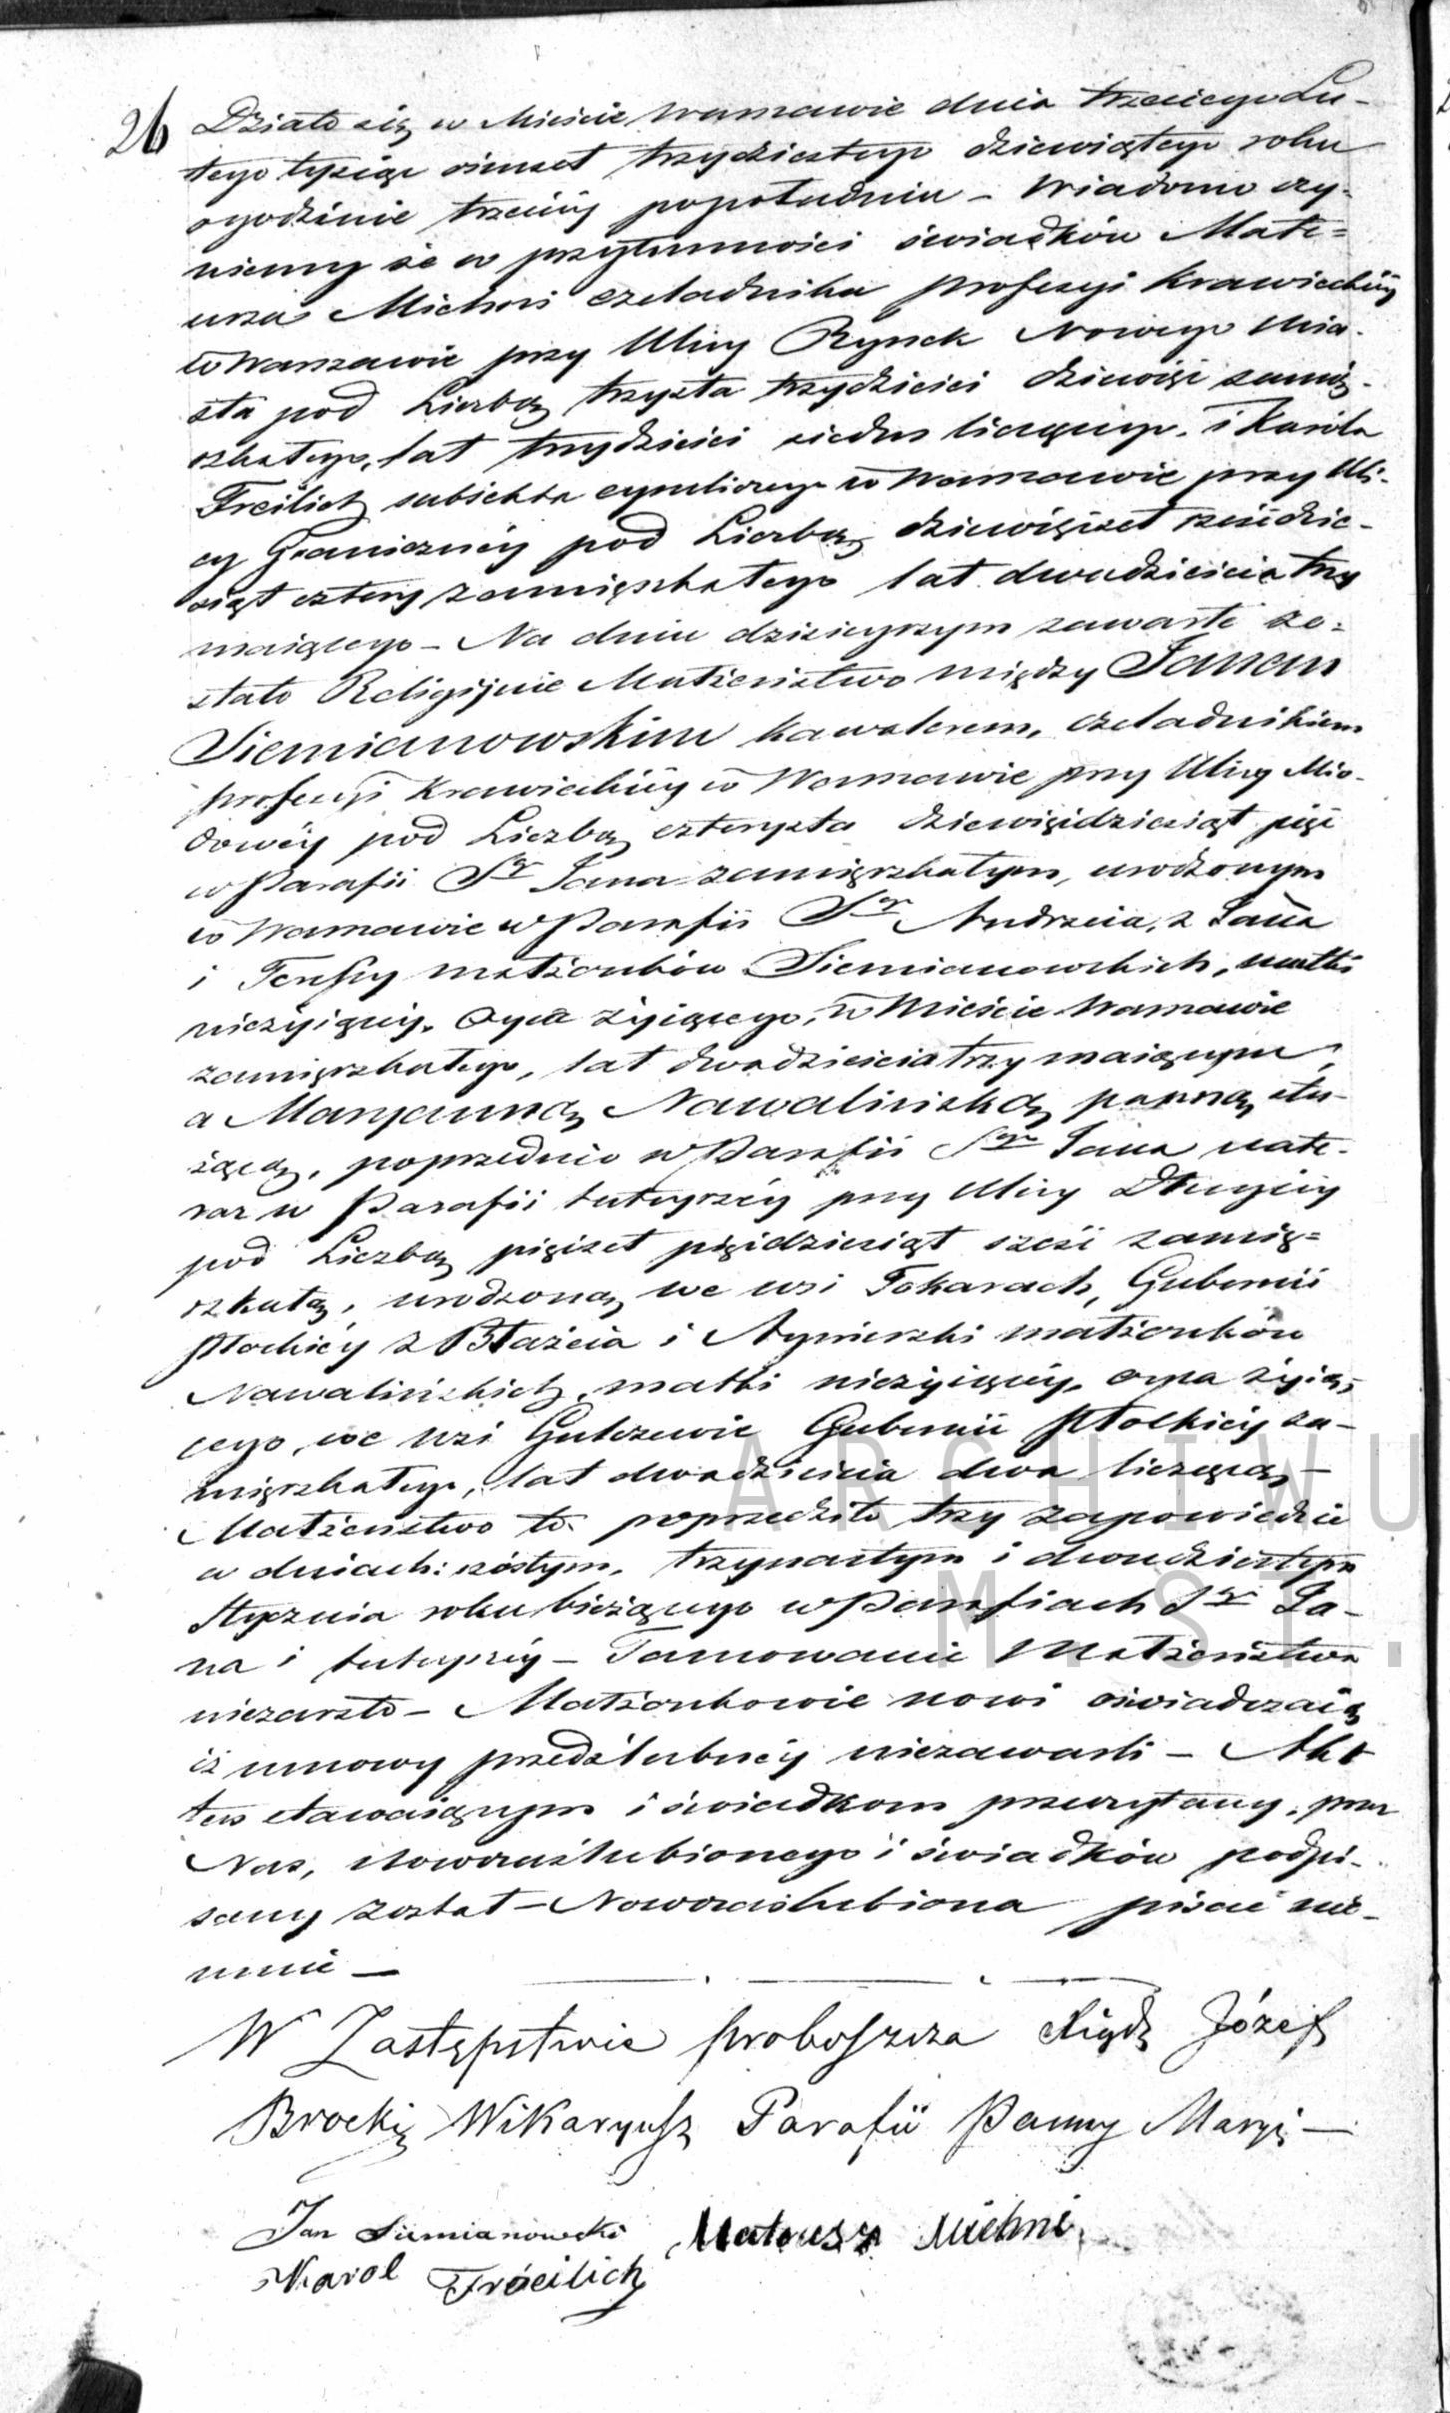 26 Działo się w Mieście Warszawie dnia trzeciego Lu-
tego tysiąc ośmset trzydziestego dziewiątego roku
o godzinie trzeciéj popołudniu – Wiadomo czy-
niemy że w przytomności świadków Mate-
usza Michni czeladnika profesyi krawieckiéj
w Warszawie przy Ulicy Rynek Nowego Mia-
sta pod Liczbą trzysta trzydzieści dziewięć zamię-
szkałego, lat trzydzieści siedm liczącego, i Karola
Freilich subiekta cyrulicznego w Warszawie przy Uli-
cy Granicznéy pod Liczbą dziewięćset sześćdzie-
siąt cztery zamięszkałego lat dwadzieścia trzy
maiącego – Na dniu dzisieyszym zawarte zo-
stało Religijnie Małżeństwo między Janem
Siemianowskim kawalerem, czeladnikiem
profesyi krawieckiéy w Warszawie przy Ulicy Mio-
dowéy pod Liczbą czterysta dziewięćdziesiąt pięć
w Parafii Sgo Jana zamięszkałym, urodzonym
w Warszawie w Parafii Sgo Andrzeia, z Jana
i Teressy małżonków Siemianowskich, matki
nieżyiącéy, Oyca żyiącego, w Mieście Warszawie
zamięszkałego, lat dwadzieścia trzy maiącym,
a Maryanną Nawalińską panną słu-
żącą, poprzednio w Parafii Sgo Jana a te-
raz w Parafii tuteyszéy przy Ulicy Długiéy
pod Liczbą pięćset pięćdziesiąt sześć zamię-
szkałą, urodzoną we wsi Tokarach, Gubernii
Płockiéy z Błażeia i Agnieszki małżonków
Nawalińskich, matki nieżyiącéy, oyca żyią-
cego, we wsi Gulczewie Gubernii Płockiéy za-
mięszkałego, lat dwadzieścia dwa liczącą –
Małżeństwo to poprzedziło trzy zapowiedzie
w dniach: szóstym, trzynastym i dwudziestym
Stycznia roku bieżącego w Parafiach Sgo Ja-
na i tuteyszéy – Tamowanie Małżeństwa
niezaszło – Małżonkowie nowi oświadczaią
iż umowy przedślubnéy niezawarli – Akt
ten stawaiącym i świadkom przeczytany, przez
Nas, Nowozaślubionego i świadków podpi-
sany został – Nowozaślubiona pisać nie-
umie –
W Zastępstwie proboszcza Xiądz Józef
Brocki Wikaryusz Parafii Panny Maryi –
Jan Siemianowski Mateusz Michni
Karol Fróeilich
ARCHIWU
M. ST.